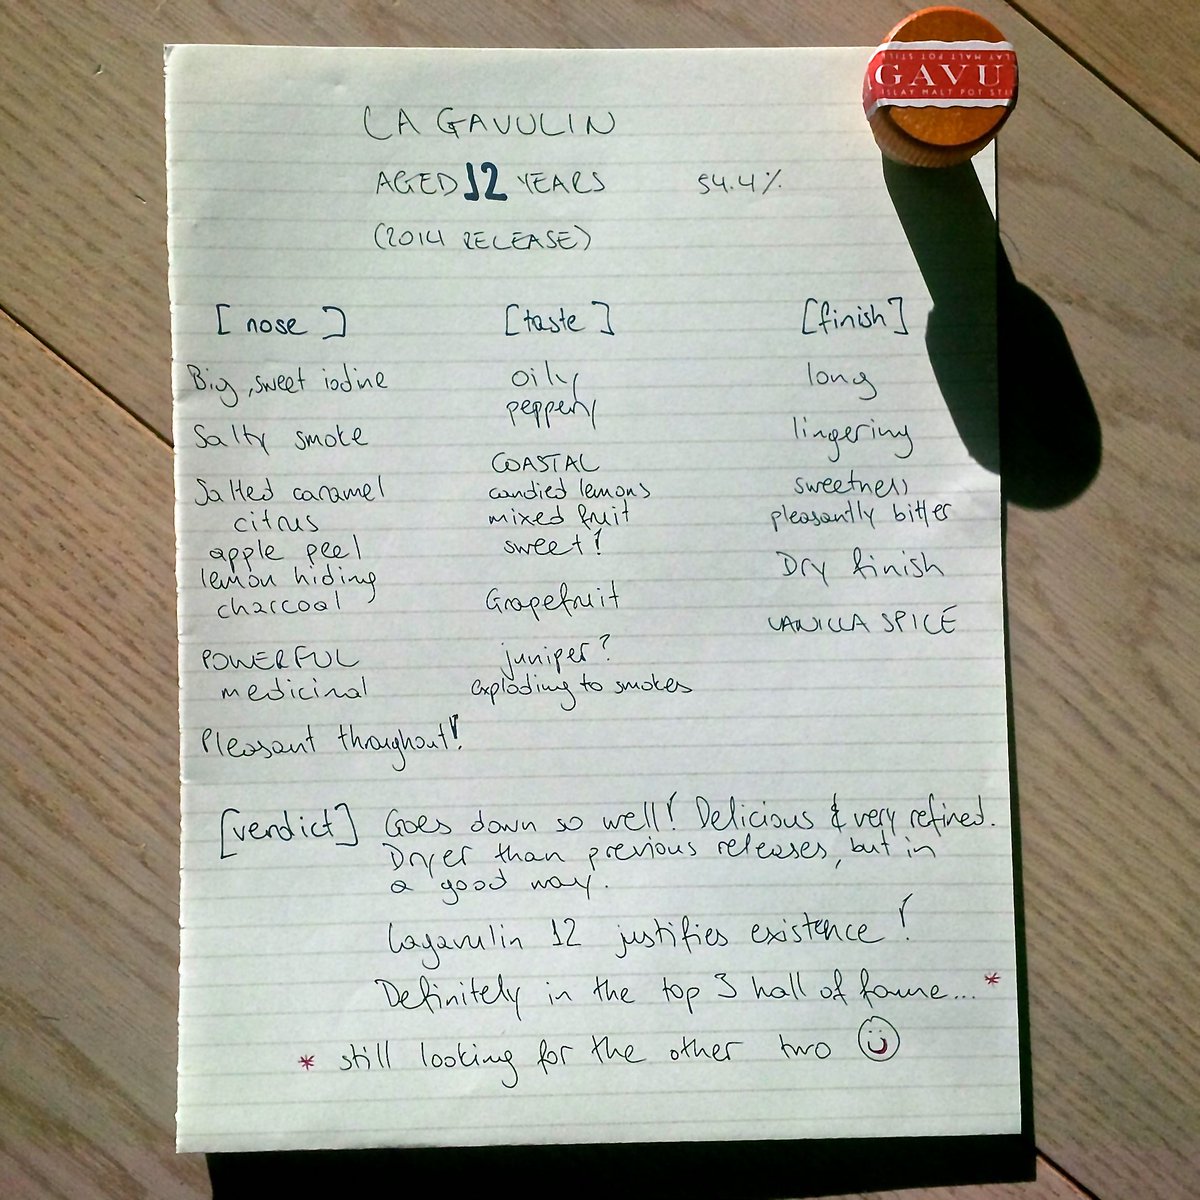 GAVU
ISLAY MALT POT STI
LAGAVULIN
AGED 12 YEARS 54.4%
(2014 RELEASE)
[nose]
Big, sweet iodine
Salty smoke
Salted caramel
citrus
apple peel
lemon hiding
charcoal
POWERFUL
medicinal
Pleasant throughout!
[taste]
oily
peppery
COASTAL
candied lemons
mixed fruit
sweet!
Grapefruit
juniper?
exploding to smokes
[finish]
long
lingering
sweetness
pleasantly bitter
Dry finish
VANILLA SPICE
[verdict] Goes down so well! Delicious & very refined.
Dryer than previous releases, but in
a good way.
Lagavulin 12 justifies existence!
Definitely in the top 3 hall of fame... *
* still looking for the other two